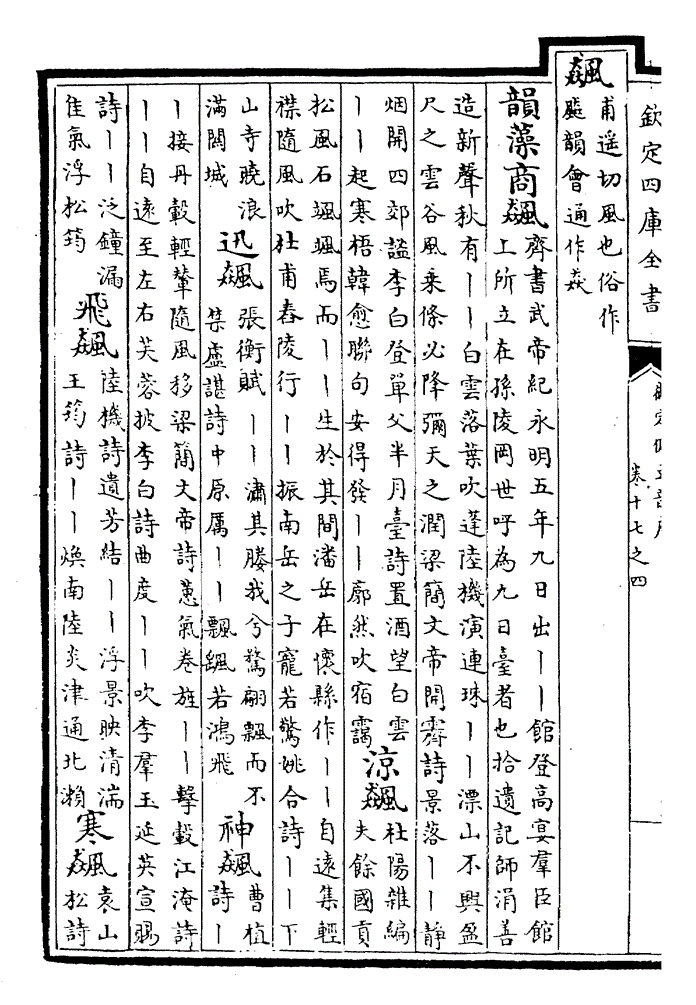 欽定四庫全書
卷十七之四
飆
甫遥切風也俗作
飚韻會通作焱
韻藻商飆
齊書武帝紀永明五年九日出丨丨館登高宴羣臣館
上所立在孫陵岡世呼為九日臺者也拾遺記師涓善
造新聲秋有丨丨白雲落葉吹蓬陸機演連珠丨丨漂山不興盈
尺之雲谷風乗條必降彌天之潤梁簡文帝開霽詩景落丨丨靜
烟開四郊謐李白登單父半月臺詩置酒望白雲
丨丨起寒梧韓愈聯句安得發丨丨廓然吹宿靄
涼飆
杜陽雜編
夫餘國貢
松風石颯颯焉而丨丨生於其間潘岳在懷縣作丨丨自遠集輕
襟隨風吹杜甫舂陵行丨丨振南岳之子寵若驚姚合詩丨丨下
山寺曉浪
滿閶城
迅飆
張衡賦丨丨瀟其媵我兮驚翩飄而不
集盧諶詩中原厲丨丨飄颻若鴻飛
神飆
曹植
詩丨
丨接丹轂輕輦隨風移梁簡文帝詩蕙氣卷旌丨丨擊轂江淹詩
丨丨自遠至左右芙蓉披李白詩曲度丨丨吹李羣玉延英宣賜
詩丨丨泛鐘漏
佳氣浮松筠
飛飆
陸機詩遺芳結丨丨浮景映清湍
王筠詩丨丨煥南陸炎津通北瀨
寒飆
袁山
松詩